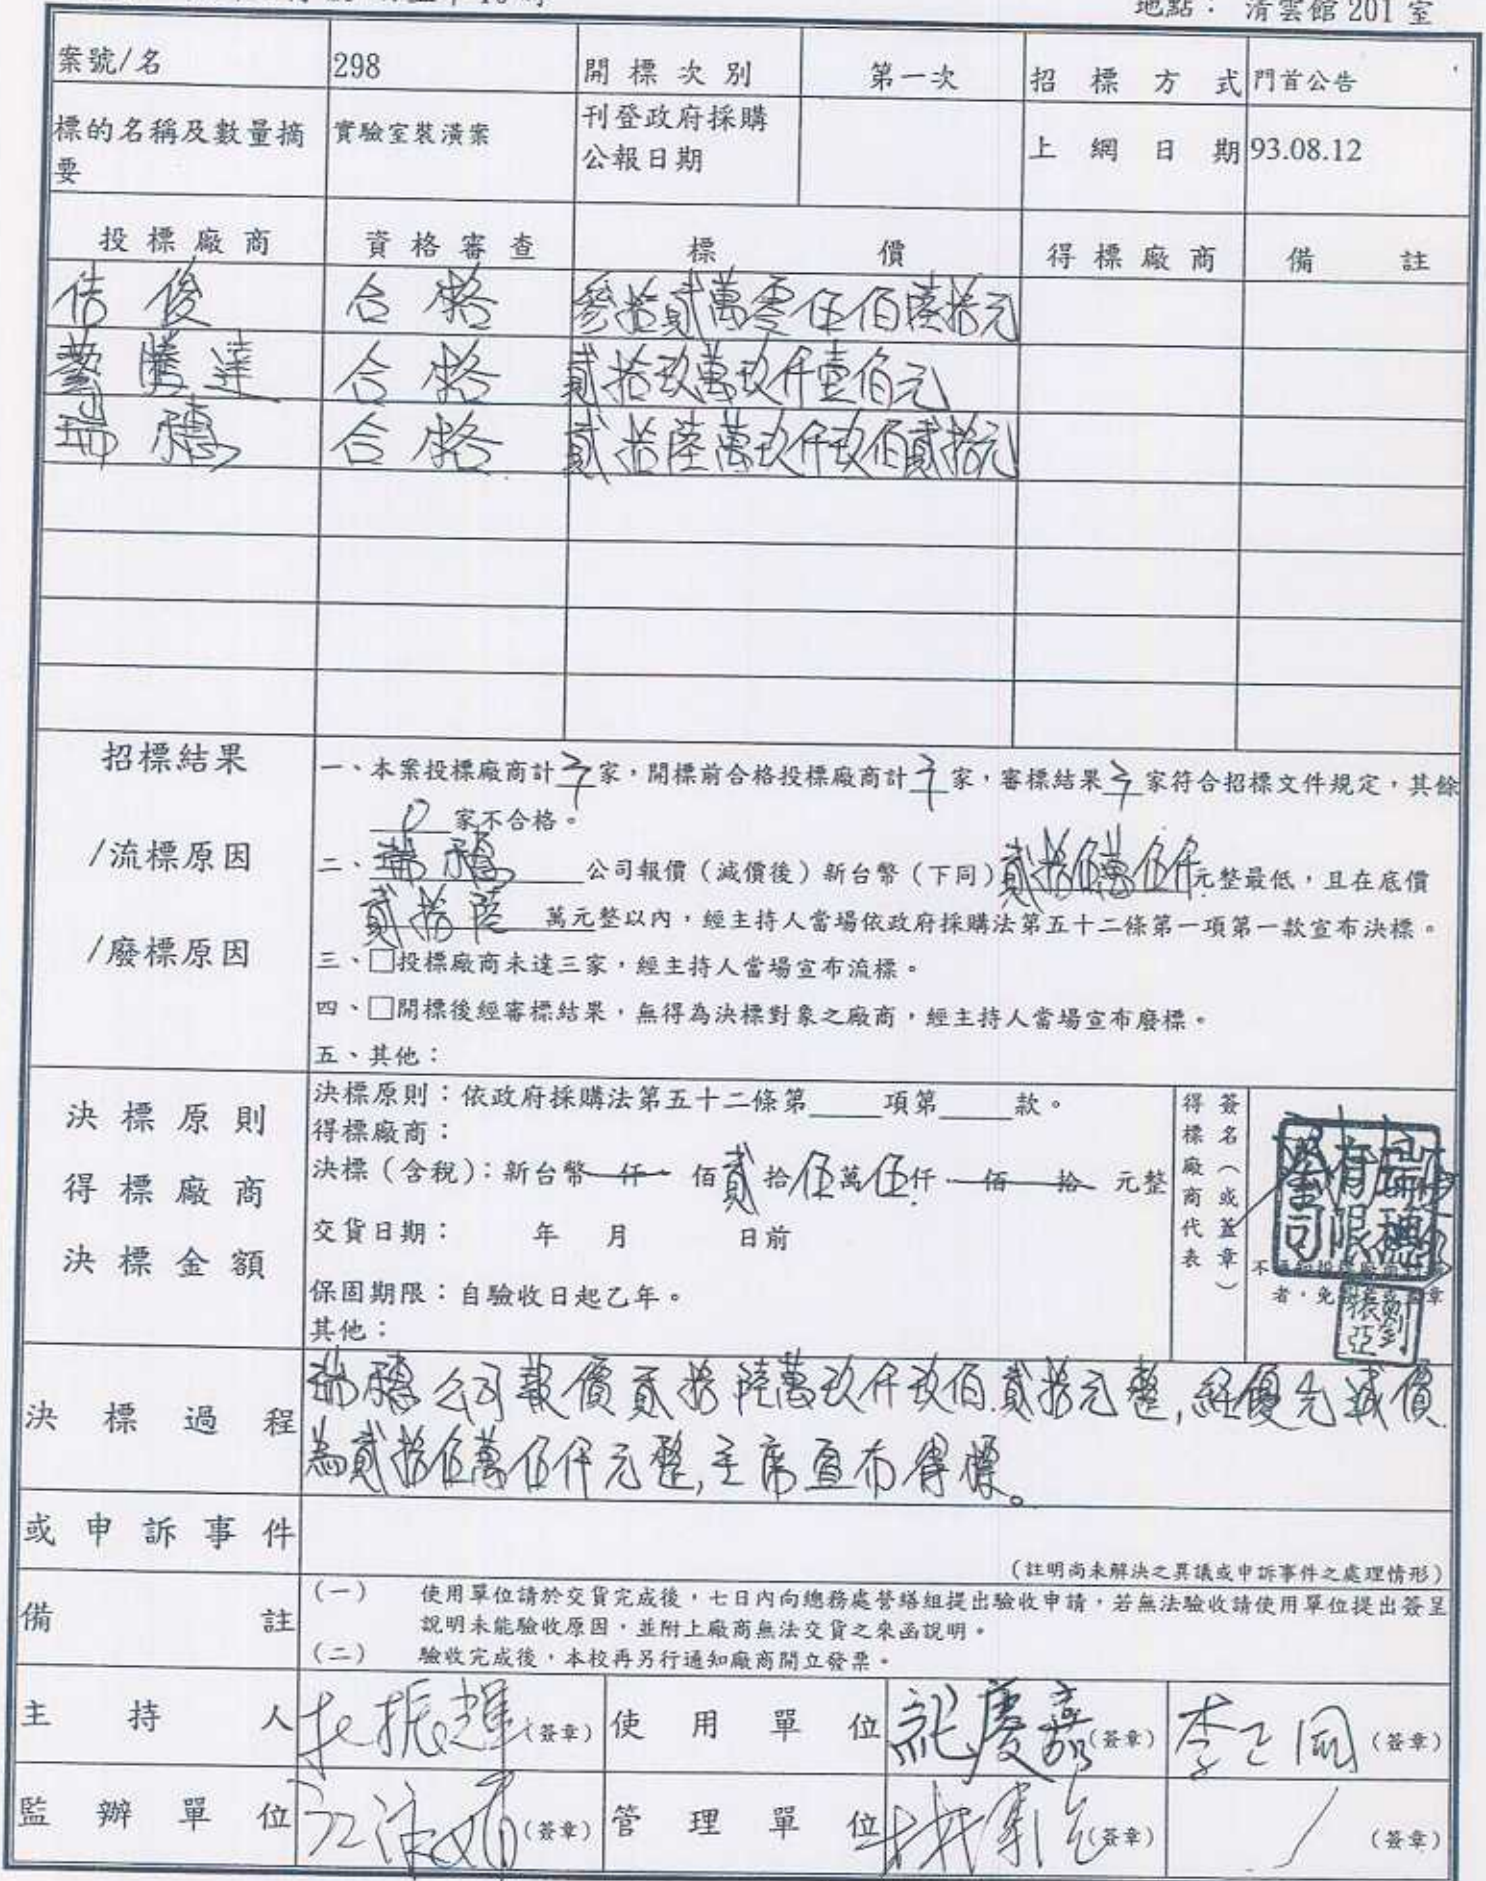 地點： 清雲館 201 室
案號/名 298 開標次別 第一次 招標方式 門首公告
標的名稱及數量摘要 實驗室裝潢案 刊登政府採購公報日期 上網日期 93.08.12
投標廠商 資格審查 標價 得標廠商 備註
佶俊 合格 參拾貳萬零伍佰陸拾元
騰達 合格 貳拾玖萬玖仟壹佰元
瑞穗 合格 貳拾陸萬玖仟玖佰貳拾元
招標結果
/流標原因
/廢標原因
一、本案投標廠商計 3 家，開標前合格投標廠商計 3 家，審標結果 3 家符合招標文件規定，其餘
0 家不合格。
二、瑞穗 公司報價（減價後）新台幣（下同）貳拾伍萬伍仟元整最低，且在底價
貳拾陸 萬元整以內，經主持人當場依政府採購法第五十二條第一項第一款宣布決標。
三、□投標廠商未達三家，經主持人當場宣布流標。
四、□開標後經審標結果，無得為決標對象之廠商，經主持人當場宣布廢標。
五、其他：
決標原則
得標廠商
決標金額
決標原則：依政府採購法第五十二條第____項第____款。
得標廠商：
決標（含稅）：新台幣 仟 佰貳拾伍萬伍仟 佰 拾 元整
交貨日期： 年 月 日前
保固期限：自驗收日起乙年。
其他：
得標廠商代表
簽名（或蓋章）
瑞穗有限公司
者，免 章
劉振亞
決標過程
瑞穗公司報價貳拾陸萬玖仟玖佰貳拾元整,經優先減價
為貳拾伍萬伍仟元整,主席宣布得標。
或申訴事件
（註明尚未解決之異議或申訴事件之處理情形）
備註
（一） 使用單位請於交貨完成後，七日內向總務處營繕組提出驗收申請，若無法驗收請使用單位提出簽呈
說明未能驗收原因，並附上廠商無法交貨之來函說明。
（二） 驗收完成後，本校再另行通知廠商開立發票。
主持人 振輝（簽章） 使用單位 紀慶嘉（簽章） 李 國（簽章）
監辦單位 （簽章） 管理單位 （簽章） （簽章）